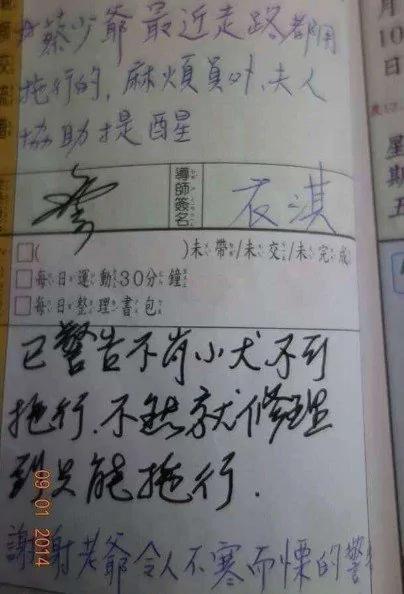 蔡少爺最近走路都用
拖行的,麻煩員外、夫人
協助提醒
導師簽名
衣淇
□( )未帶/未交/未完成
□每日運動30分鐘
□每日整理書包
已警告不肖小犬不到
拖行.不然就修理
到只能拖行.
謝謝老爺令人不寒而慄的警
09 01 2014
月
10
日
星
期
五